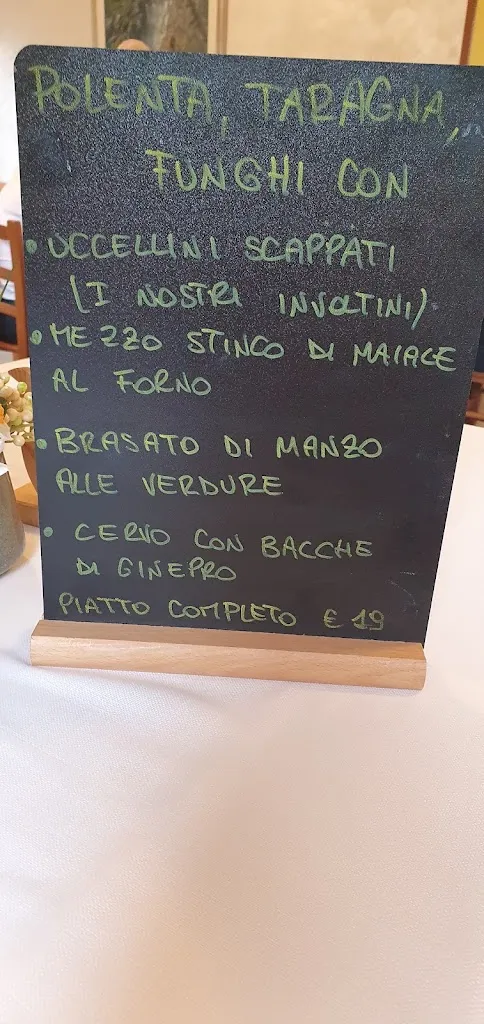 POLENTA, TARAGNA,
FUNGHI CON
• UCCELLINI SCAPPATI
(I NOSTRI INVOLTINI)
• MEZZO STINCO DI MAIALE
AL FORNO
• BRASATO DI MANZO
ALLE VERDURE
• CERVO CON BACCHE
DI GINEPRO
PIATTO COMPLETO € 19